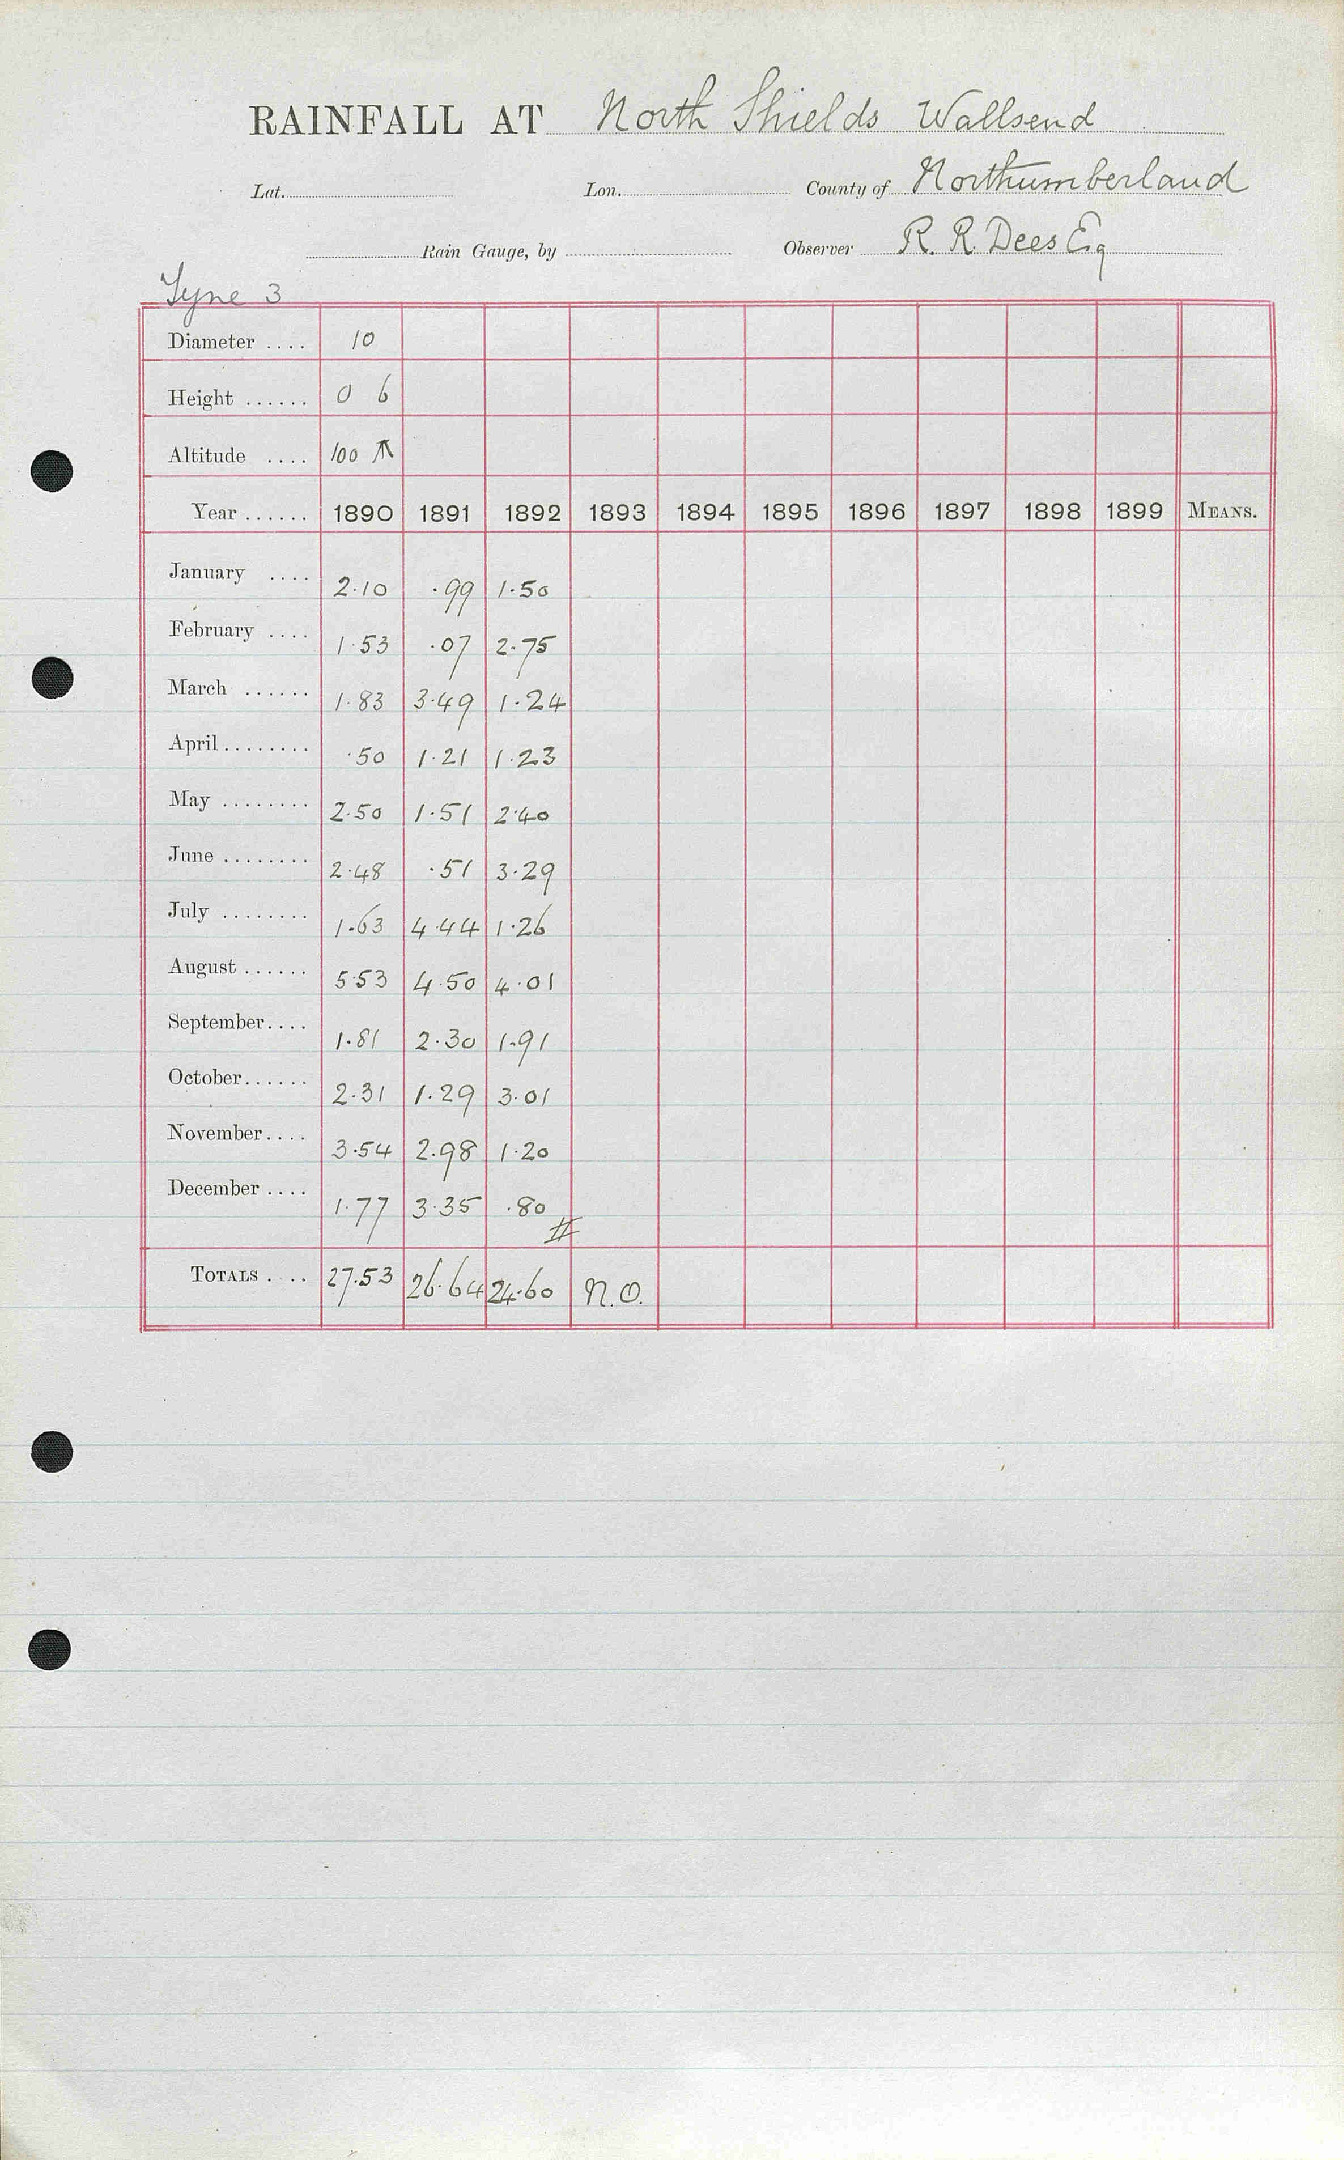 RAINFALL AT North Shields Wallsend
Lat. Lon. County of Northumberland
Rain Gauge, by Observer R. R. Dees Esq
Tyne 3
Diameter .... 10
Height ...... 0 6
Altitude .... 100 T
Year ...... 1890 1891 1892 1893 1894 1895 1896 1897 1898 1899 MEANS.
January .... 2.10 .99 1.50
February .... 1.53 .07 2.75
March ...... 1.83 3.49 1.24
April ........ .50 1.21 1.23
May ........ 2.50 1.51 2.40
June ........ 2.48 .51 3.29
July ........ 1.63 4.44 1.26
August ...... 5.53 4.50 4.01
September.... 1.81 2.30 1.91
October...... 2.31 1.29 3.01
November.... 3.54 2.98 1.20
December .... 1.77 3.35 .80
TOTALS .... 27.53 26.64 24.60 N.O.